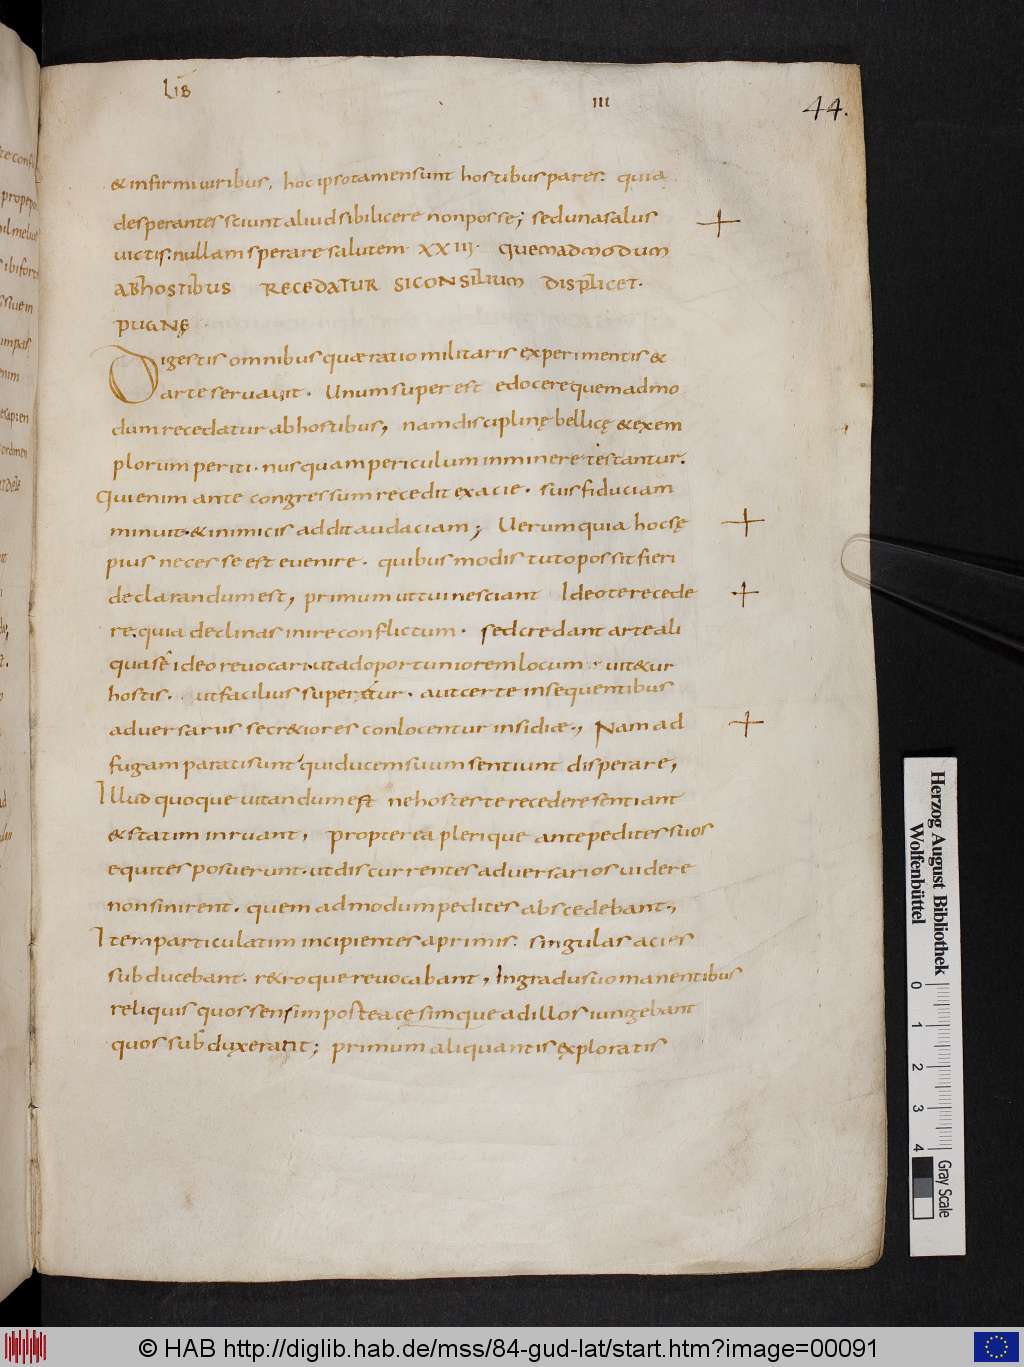 Lib
III
44.
& infirmi viribus. hoc ipso tamen sunt hostibus pares. quia
desperantes sciunt aliud sibi licere non posse; sed una salus
victis. nullam sperare salutem. XXIII. Quemadmodum
ab hostibus recedatur si consilium displicet.
pugnę
Digestis omnibus quae ratio militaris experimentis &
arte servavit. Unum superest edocere quemadmo
dum recedatur ab hostibus, nam disciplinę bellicę & exem
plorum periti. nusquam periculum inminere testantur.
Qui enim ante congressum recedit ex acie. suis fiduciam
minuit. & inimicis addit audaciam; Verum quia hoc sę
pius necesse est evenire. quibus modis tuto possit fieri
declarandum est, primum ut tui nesciant Ideo te recede
re. quia declinas inire conflictum. sed credant arte ali
qua sē ideo revocari. ut ad oportuniorem locum. vit&ur
hostis. ut facilius superetur. aut certe insequentibus
adversariis secr&iores conlocentur insidiae., Nam ad
fugam parati sunt qui ducem suum sentiunt disperare,
Illud quoque vitandum est ne hostes te recedere sentiant
& statim inruant, propterea plerique ante pedites suos
equites posuerunt. ut discurrentes adversarios videre
non sinirent. quemadmodum pedites abscedebant.,
Item particulatim incipientes a primis. singulas acies
subducebant. r&roque revocabant, In gradu suo manentibus
reliquis quos sensim postea cęsimque ad illos iungebant
quos subduxerant; primum aliquantis exploratis
Herzog August Bibliothek
Wolfenbüttel
0 1 2 3 4
Gray Scale
© HAB http://diglib.hab.de/mss/84-gud-lat/start.htm?image=00091